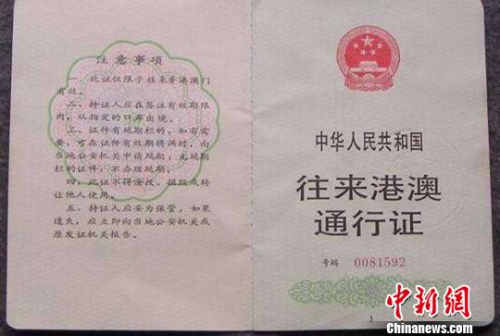 注意事项
一、此证仅限于往来香港澳门
有效。
二、持证人应在签注有效期限
内，从指定的口岸出境。
三、证件有延期栏的，如有需
要，可在证件有效期将满时，向
当地公安机关申请延期；无延期
栏的证件，不办理延期。
四、此证不得涂改、损毁或转
让他人使用。
五、持证人应妥为保管，如果
遗失，应立即向当地公安机关或
原发证机关报告。
中华人民共和国
往来港澳
通行证
号码 0081592
1
中新网
Chinanews.com